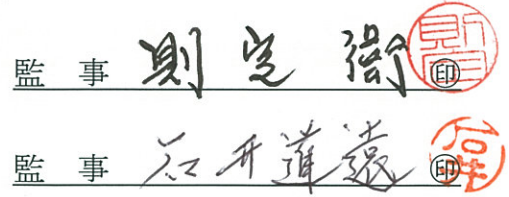 監 事 則定 衛 ㊞
監 事 石井道遠 ㊞